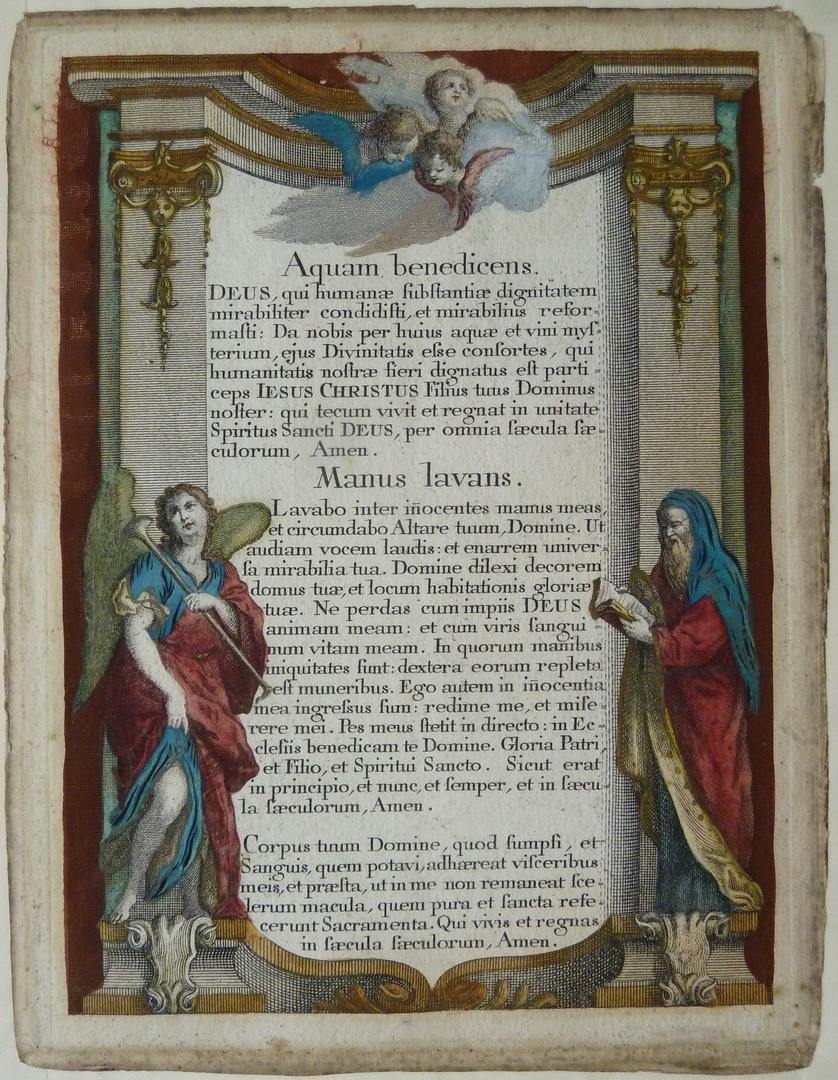 Aquam benedicens.
DEUS, qui humanæ ſubſtantiæ dignitatem
mirabiliter condidiſti, et mirabilius refor-
maſti: Da nobis per huius aquæ et vini myſ-
terium, ejus Divinitatis eſse conſortes, qui
humanitatis noſtræ fieri dignatus eſt parti-
ceps IESUS CHRISTUS Filius tuus Dominus
noſter: qui tecum vivit et regnat in unitate
Spiritus Sancti DEUS, per omnia ſæcula ſæ-
culorum, Amen.
Manus lavans.
Lavabo inter iñocentes manus meas,
et circumdabo Altare tuum, Domine. Ut
audiam vocem laudis: et enarrem univer-
ſa mirabilia tua. Domine dilexi decorem
domus tuæ, et locum habitationis gloriæ
tuæ. Ne perdas cum impiis DEUS
animam meam: et cum viris ſangui-
num vitam meam. In quorum manibus
iniquitates ſunt: dextera eorum repleta
eſt muneribus. Ego autem in iñocentia
mea ingreſsus ſum: redime me, et miſe-
rere mei. Pes meus ſtetit in directo: in Ec-
cleſiis benedicam te Domine. Gloria Patri,
et Filio, et Spiritui Sancto. Sicut erat
in principio, et nunc, et ſemper, et in ſæcu-
la ſæculorum, Amen.
Corpus tuum Domine, quod ſumpſi, et
Sanguis, quem potavi, adhæreat viſceribus
meis, et præſta, ut in me non remaneat ſce-
lerum macula, quem pura et ſancta refe-
cerunt Sacramenta. Qui vivis et regnas
in ſæcula ſæculorum, Amen.